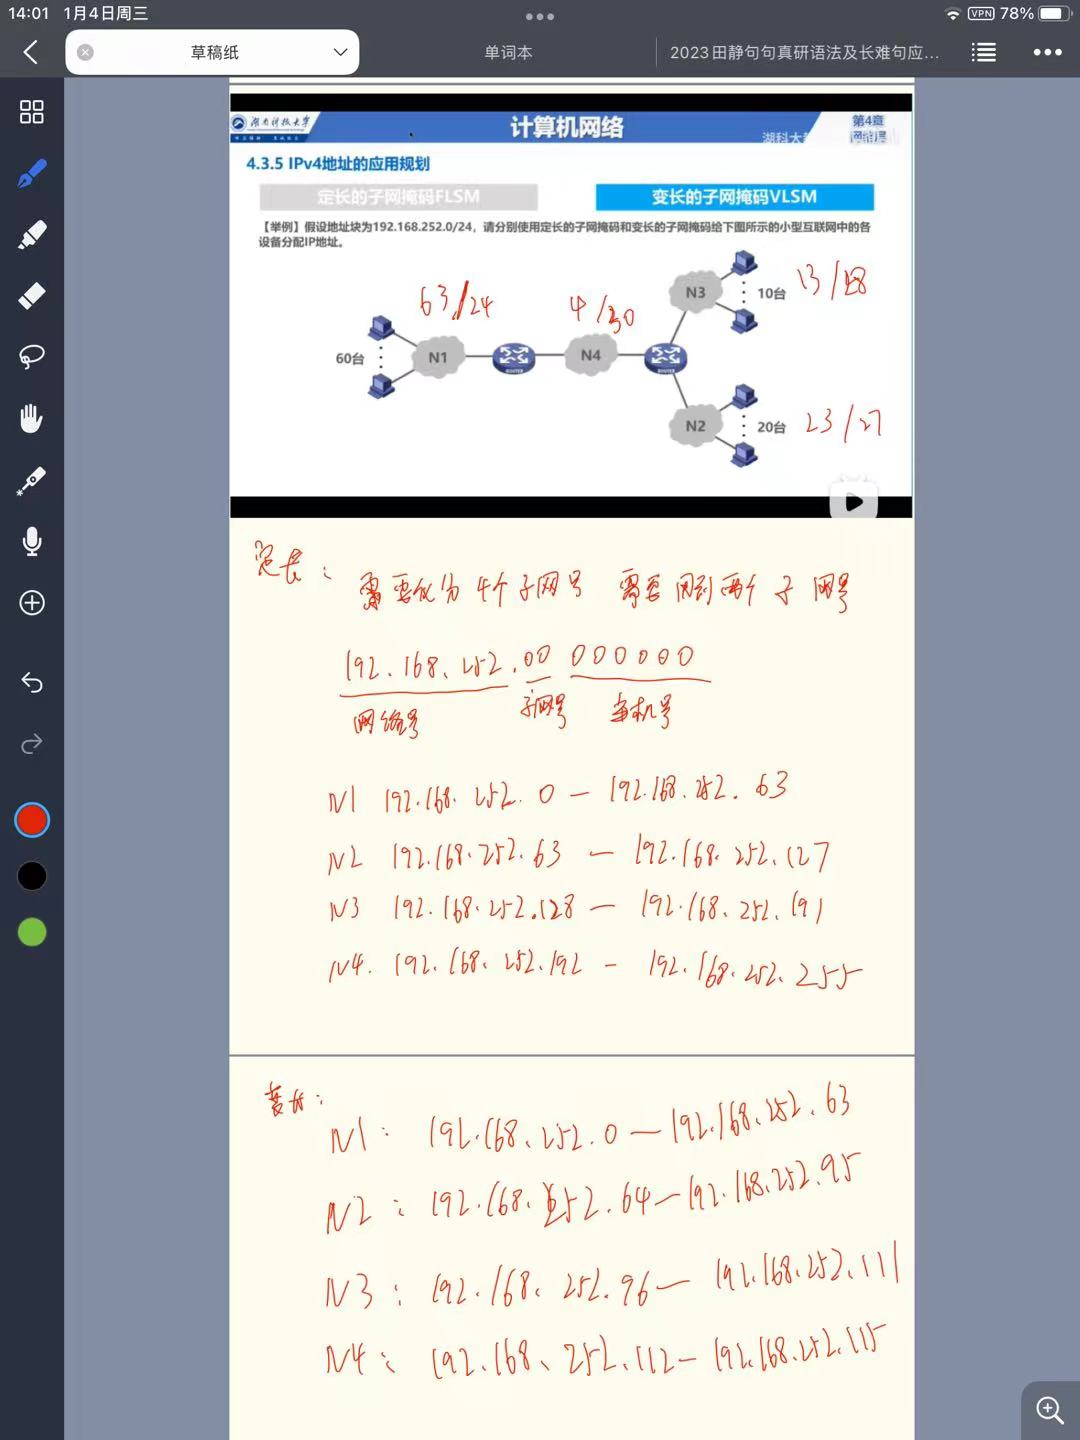 14:01 1月4日周三
VPN 78%
草稿纸
单词本
2023田静句句真研语法及长难句应...
湖南科技大学
计算机网络
第4章
网络层
湖科大
4.3.5 IPv4地址的应用规划
定长的子网掩码FLSM
变长的子网掩码VLSM
【举例】假设地址块为192.168.252.0/24，请分别使用定长的子网掩码和变长的子网掩码给下图所示的小型互联网中的各
设备分配IP地址。
63/24
4/30
13/28
N3
10台
60台
N1
ROUTER
N4
ROUTER
N2
20台
23/27
定长：
需要化分4个子网号 需要用到两个子网号
192.168.252.00 000000
网络号 子网号 主机号
N1 192.168.252.0 — 192.168.252.63
N2 192.168.252.63 — 192.168.252.127
N3 192.168.252.128 — 192.168.252.191
N4. 192.168.252.192 - 192.168.252.255
变长：
N1: 192.168.252.0 — 192.168.252.63
N2: 192.168.252.64 — 192.168.252.95
N3: 192.168.252.96 — 192.168.252.111
N4: 192.168.252.112 - 192.168.252.115